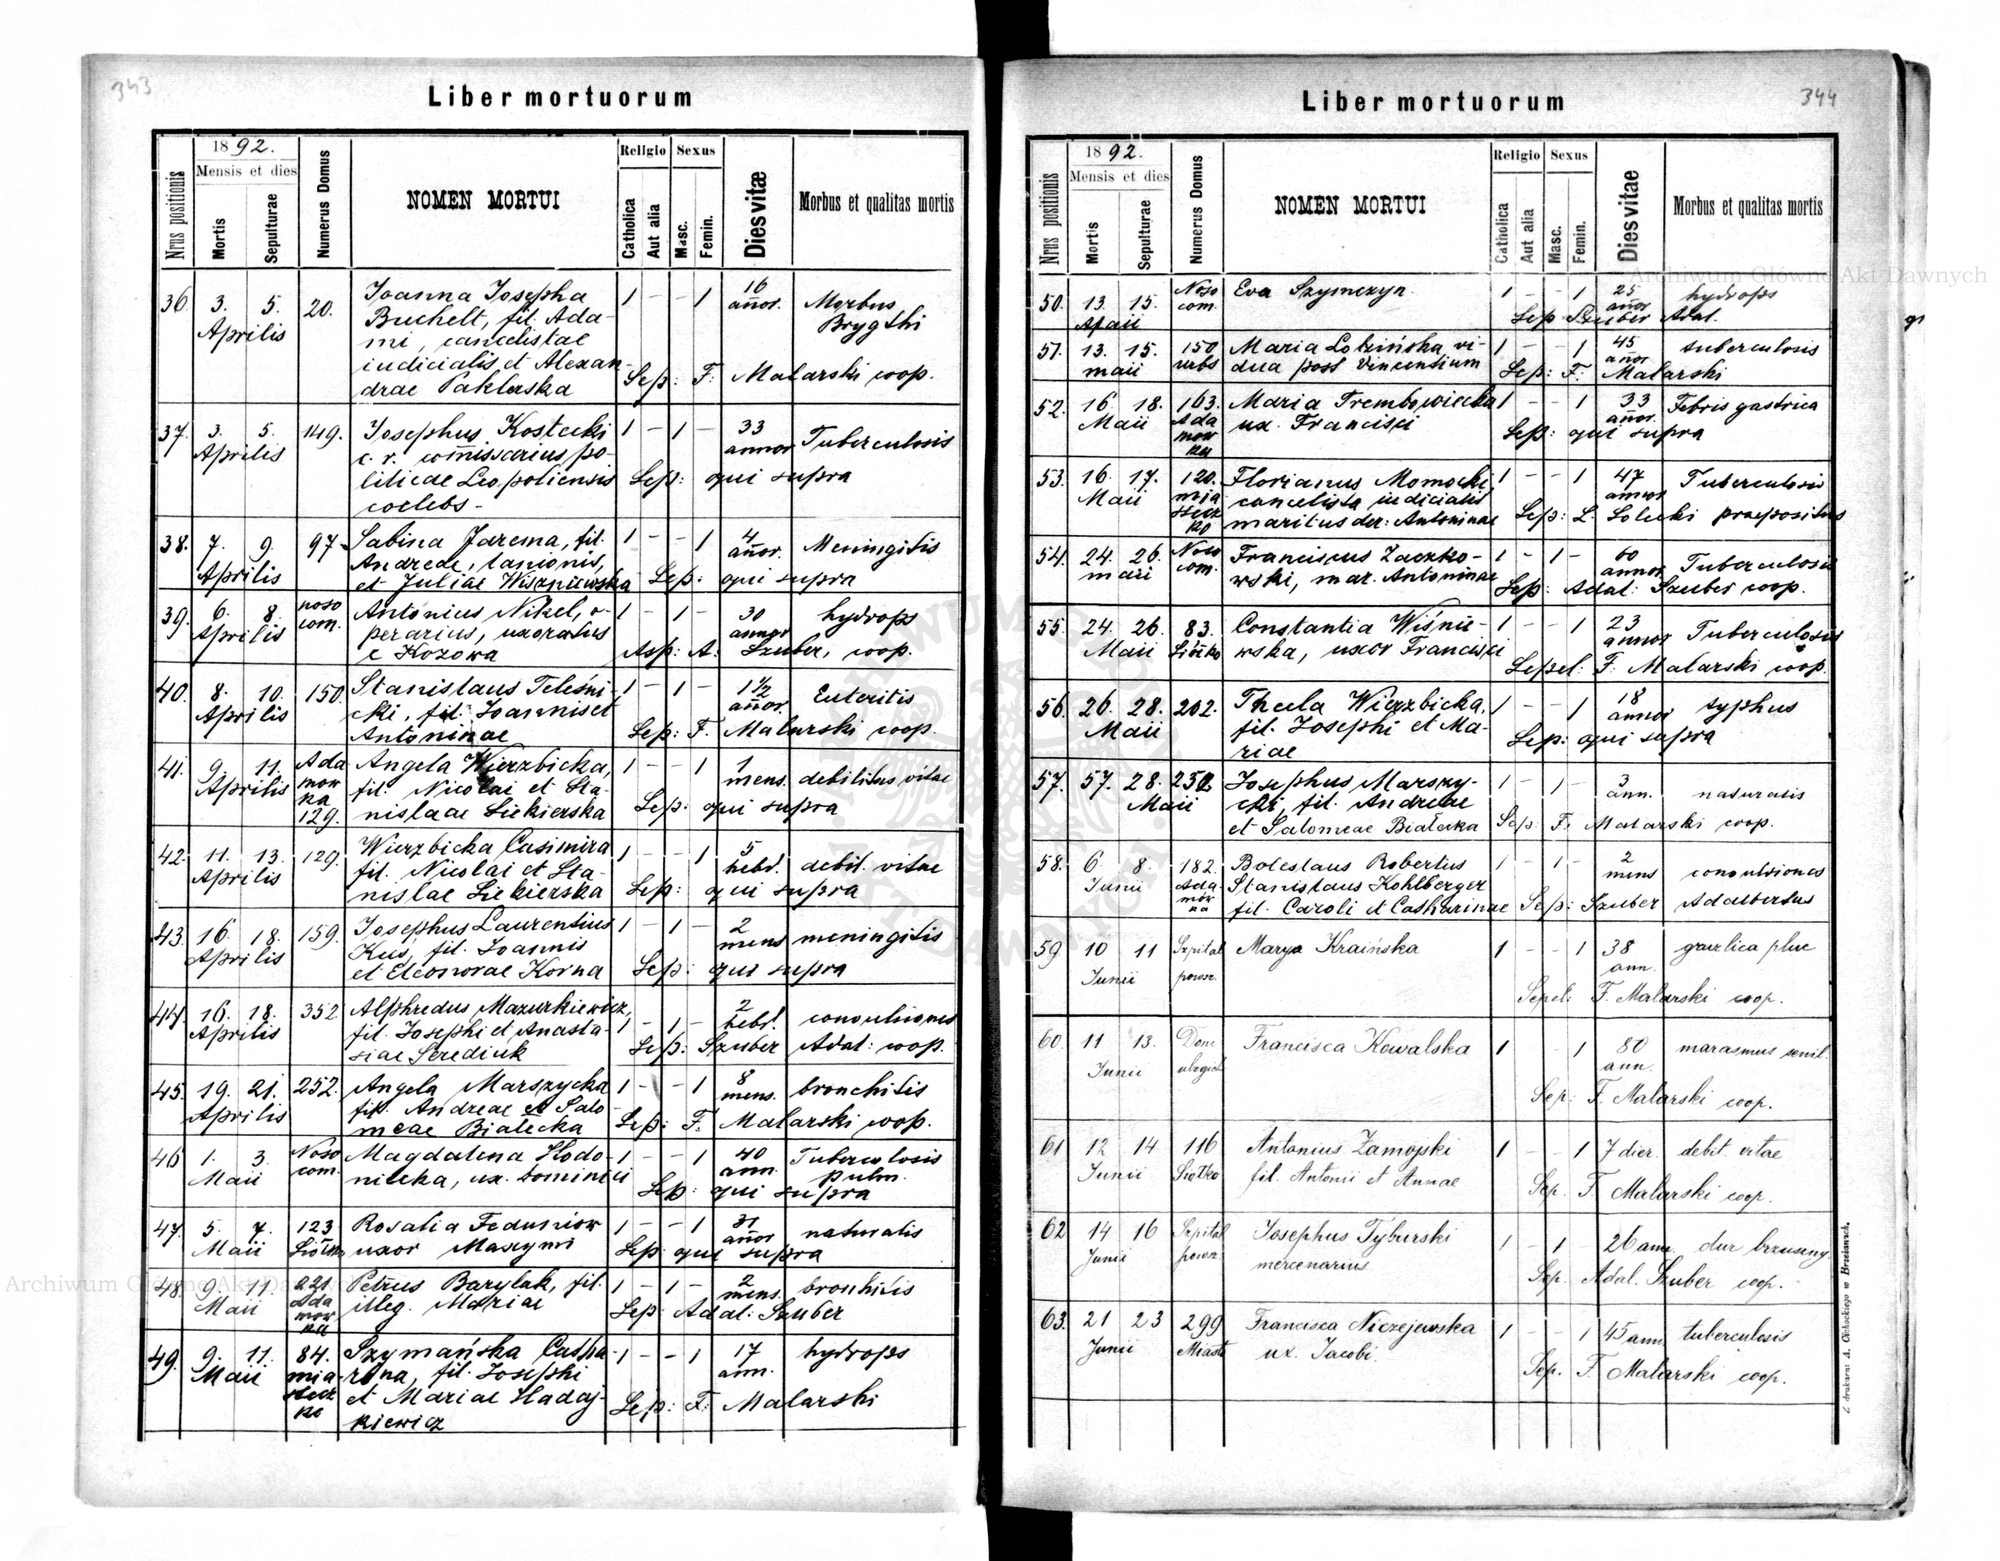 343
Liber mortuorum
1892.
Religio Sexus
Mensis et dies
Nrus positionis
Mortis
Sepulturae
Numerus Domus
NOMEN MORTUI
Catholica
Aut alia
Masc.
Femin.
Dies vitæ
Morbus et qualitas mortis
36. 3. 5. 20. Joanna Josepha 1 - - 1 16
Aprilis Buchelt, fil. Ada- añor. Morbus
mi, cancelistae Brygthi
iudicialis et Alexan-
drae Sep: F. Malarski coop.
37. 3. 5. 149. Josephus Kostecki 1 - 1 - 33
Aprilis c. r. com̃issarius po- annor Tuberculosis
litiae Leopoliensis Sep: qui supra
coelebs -
38. 7. 9. 97 Sabina Jarema, fil. 1 - - 1 4
Aprilis Andreae, lanionis, añor. Meningitis
et Juliae Wiszniewska Sep: qui supra
39. 6. 8. noso Antonius Nikel, o- 1 - 1 - 30 hydrops
Aprilis com. perarius, uxoratus annor
e Kozowa A: Szuber, coop.
40. 8. 10. 150. Stanislaus Teleśni- 1 - 1 - 1 1/2 Enteritis
Aprilis cki, fil. Joannis et añor.
Antoninae Sep: F. Malarski coop.
41. 9. 11. Ada Angela Wierzbicka, 1 - - 1 1
Aprilis mow fil. Nicolai et Sta- mens. debilitas vitae
ka nislaae Siekierska Sep: qui supra
129.
42. 11. 13. 129. Wierzbicka Casimira 1 - - 1 5
Aprilis fil. Nicolai et Sta- hebd. debil. vitae
nislae Siekierska Sep: qui supra
43. 16. 18. 159. Josephus Laurentius 1 - 1 - 2
Aprilis Kuś, fil. Joannis mens meningitis
et Eleonorae Korna Sep: qui supra
44. 16. 18. 352 Alphredus Mazurkiewicz, 2
Aprilis fil. Josephi et Anasta- 1 - 1 - hebd. convulsiones
siae Serediuk Sep: Szuber Adal: coop.
45. 19. 21. 252. Angela Marszycka 1 - - 1 8
Aprilis fil. Andreae et Salo- mens. bronchitis
meae Białecka Sep: F. Malarski coop.
46 1. 3. Noso Magdalena Hodo- 1 - - 1 40 Tuberculosis
Maii com. niecka, ux. Dominici ann. pulm.
Sep: qui supra
47. 5. 7. 123 Rosalia Feduniow 1 - - 1 31 naturalis
Maii uxor Maxymi añor
Sep: qui supra
48. 9. 11. 221 Petrus Barylak, fil. 1 - 1 - 2 bronhitis
Maii Ada illeg. Mariae mens.
mow Sep: Adal: Szuber
ka
49. 9. 11. 84. Szymańska Catha- 1 - - 1 17 hydrops
Maii mia- rina, fil. Josephi ann.
stecz et Mariae Hadaj- Sep: F. Malarski
ko kiewicz
344
Liber mortuorum
1892.
Religio Sexus
Mensis et dies
Nrus positionis
Mortis
Sepulturae
Numerus Domus
NOMEN MORTUI
Catholica
Aut alia
Masc.
Femin.
Dies vitae
Morbus et qualitas mortis
50. 13. 15. Noso Eva Szymczyn 1 - - 1 25 hydrops
Maii com. añor
Sep Szuber Adal.
51. 13. 15. 150 Maria Lobzińska vi- 1 - - 1 45 tuberculosis
maii urbs dua post Vincentium añor
Sep: F. Malarski
52. 16. 18. 163. Maria Trembowiecka 1 - - 1 33 Febris gastrica
Maii Ada ux. Francisci añor.
mow Sep: qui supra
ka
53. 16. 17. 120. Florianus Momocki, 1 - - 1 47 Tuberculosis
Maii mia cancelista iudicialis annor
stecz maritus der: Antoninae Sep: L. Solecki praepositus
ko
54. 24. 26. Noso Franciscus Zaczko- 1 - 1 - 60
maii com. wski, mar. Antoninae annor Tuberculosis
Sep: Adal: Szuber coop.
55. 24. 26. 83. Constantia Wiśnie- 1 - - 1 23
Maii Siółko wska, uxor Francisci annor Tuberculosis
Sepel: F. Malarski coop.
56. 26. 28. 202. Thecla Wierzbicka, 1 - - 1 18 typhus
Maii fil. Josephi et Ma- annor
riae Sep: qui supra
57. 57. 28. 252 Josephus Marszy- 1 - 1 - 3
Maii cki, fil. Andreae ann. naturalis
et Salomeae Białecka Sep: F. Malarski coop.
58. 6 8. 182. Boleslaus Robertus 1 - 1 - 2
Junii Ada- Stanislaus Kohlberger mens convulsiones
mów fil. Caroli et Catharinae Sep: Szuber Adalbertus
ka
59 10 11 Szpital Marya Kraińska 1 - - 1 38 gruzlica płuc
Junii powsz. ann.
Sepel: F. Malarski coop.
60. 11 13. Dom Francisca Kowalska 1 - - 1 80 marasmus senil.
Junii ubogich ann.
Sep: F. Malarski coop.
61 12 14 116 Antonius Zamojski 1 - - 1 7 dier. debit. vitae
Junii Siołko fil. Antonii et Annae
Sep. F. Malarski coop.
62 14 16 Szpital Josephus Tyburski 1 - 1 - 26 ann. dur brzuszny
Junii powsz. mercenarius
Sep. Adal. Szuber coop.
63. 21 23 299 Francisca Niezejewska 1 - - 1 45 ann. tuberculosis
Junii Miasto ux. Jacobi.
Sep. F. Malarski coop.
Archiwum Główne Akt Dawnych
Archiwum Główne Akt Dawnych